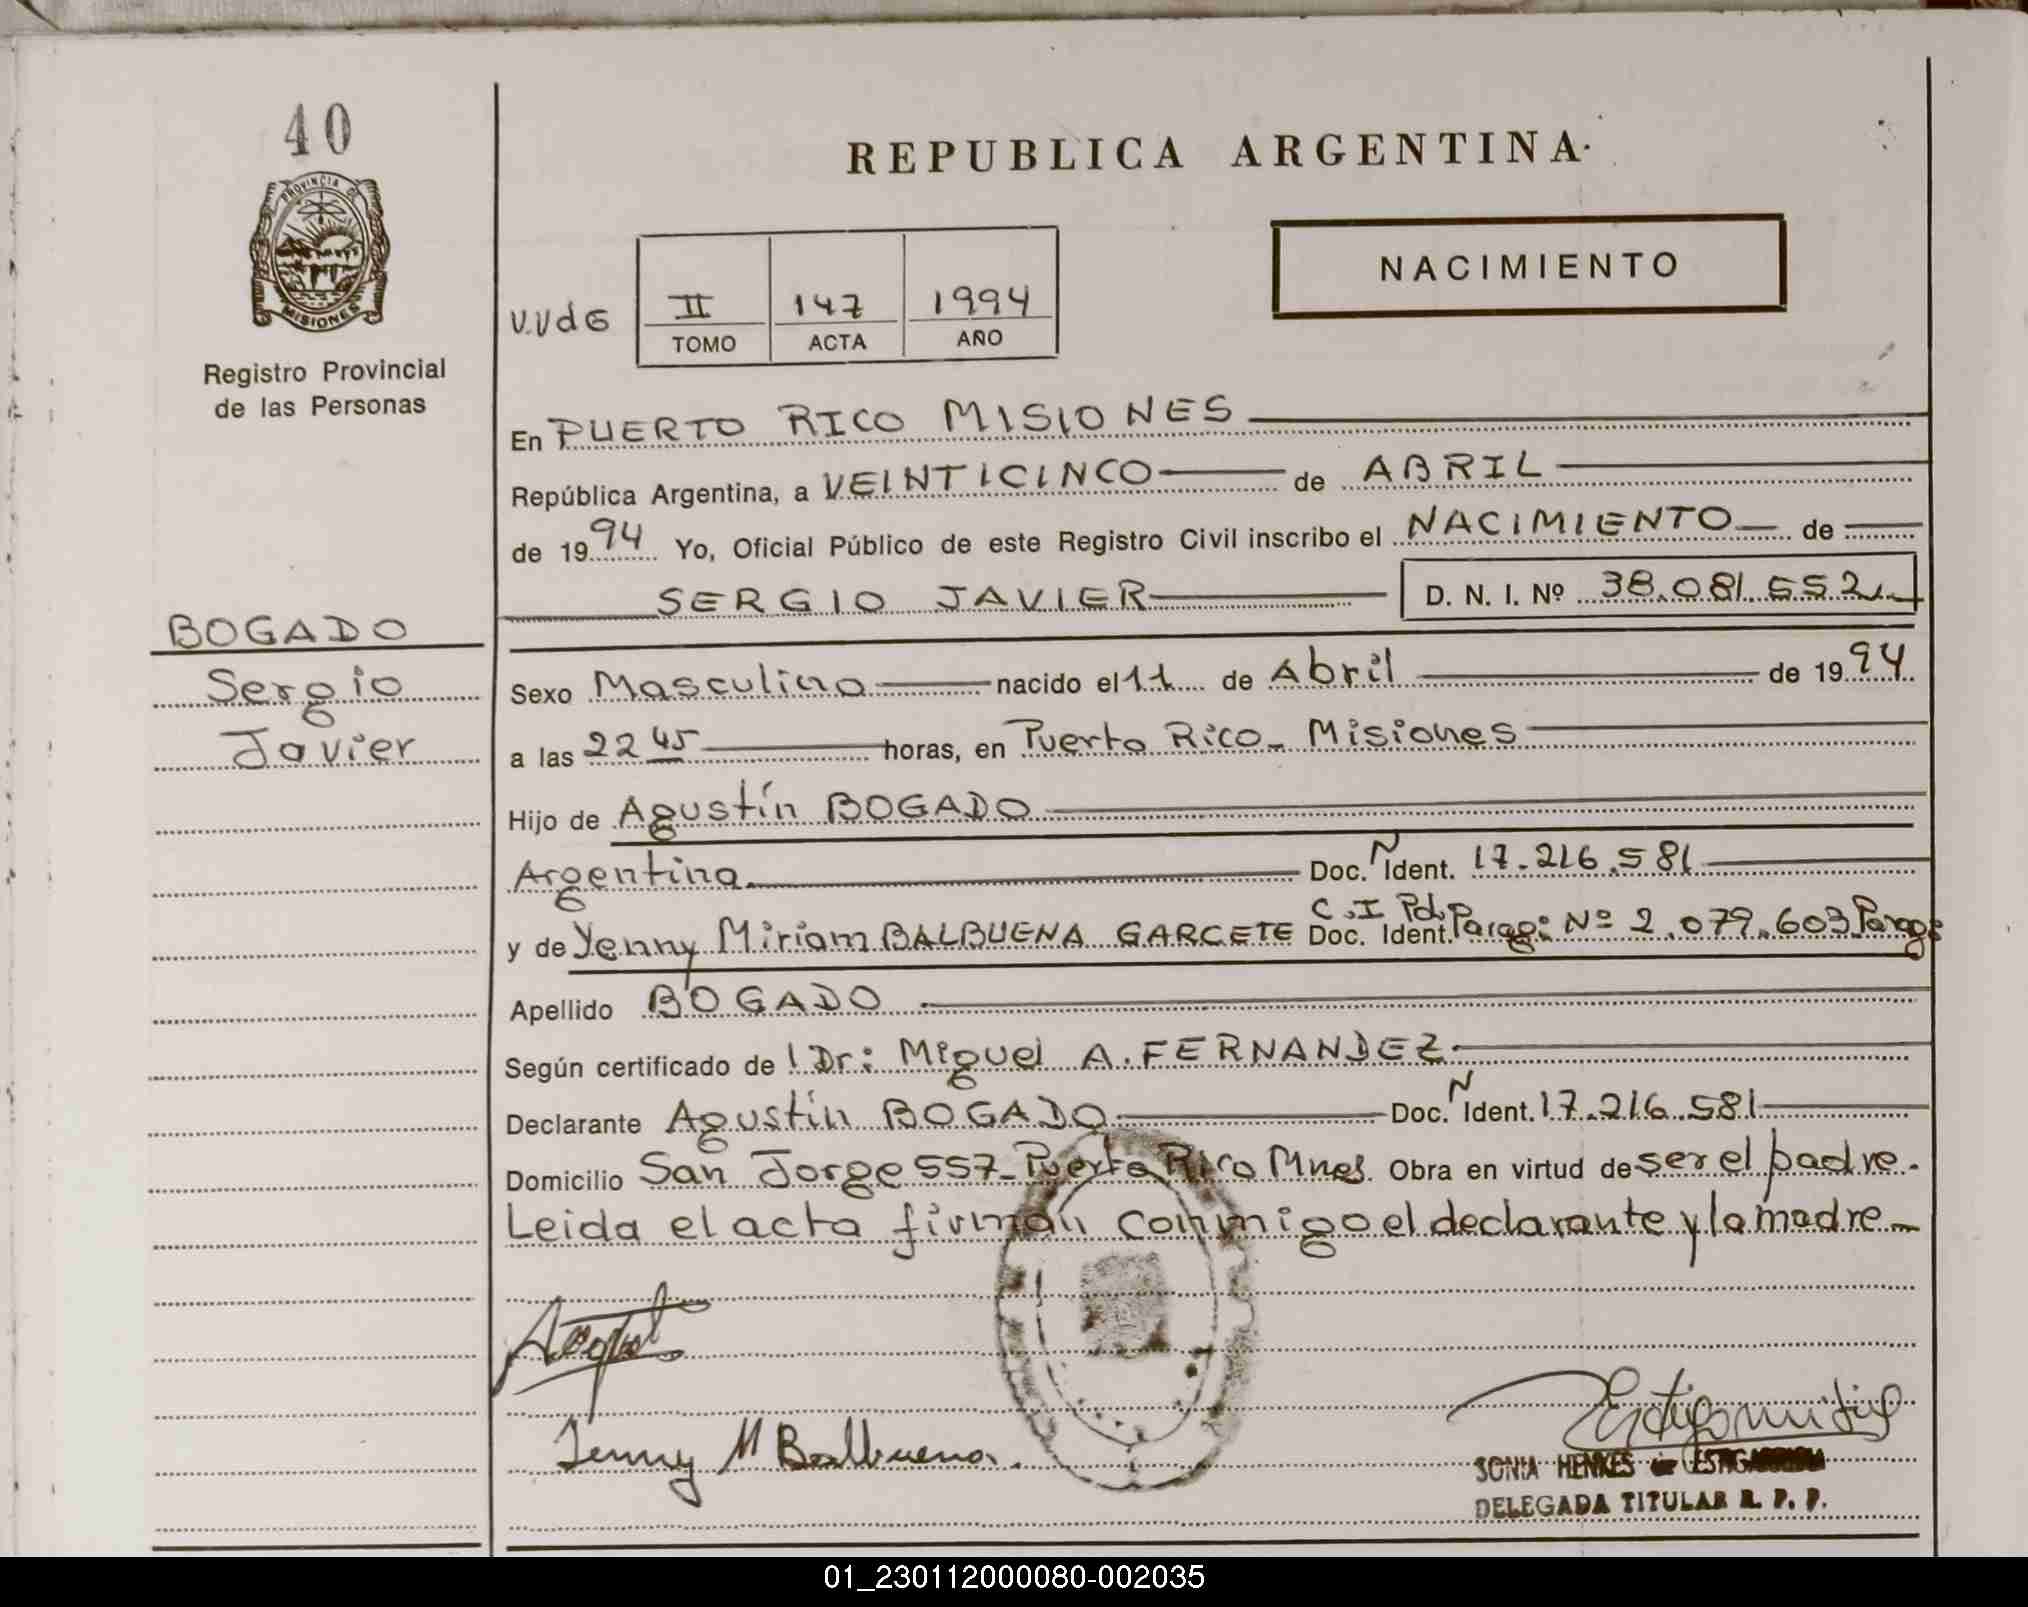 40
PROVINCIA DE
MISIONES
Registro Provincial
de las Personas
BOGADO
Sergio
Javier
REPUBLICA ARGENTINA
NACIMIENTO
V.V de G
II 147 1994
TOMO ACTA AÑO
En PUERTO RICO MISIONES
República Argentina, a VEINTICINCO de ABRIL
de 1994 Yo, Oficial Público de este Registro Civil inscribo el NACIMIENTO de
SERGIO JAVIER D. N. I. Nº 38.081.552
Sexo Masculino nacido el 11 de Abril de 1994
a las 22 45 horas, en Puerto Rico - Misiones
Hijo de Agustín BOGADO
Argentina Doc. N Ident. 17.216.581
y de Yenny Miriam BALBUENA GARCETE Doc. Ident. C.I Pol. Parag: Nº 2.079.603 Parag:
Apellido BOGADO
Según certificado de l Dr: Miguel A. FERNANDEZ
Declarante Agustín BOGADO Doc. N Ident. 17.216.581
Domicilio San Jorge 557 - Puerto Rico Mnes. Obra en virtud de ser el padre.
Leida el acta firman conmigo el declarante y la madre
Jenny M Balbuena.
SONIA HENKES de
DELEGADA TITULAR R. P. P.
01_230112000080-002035